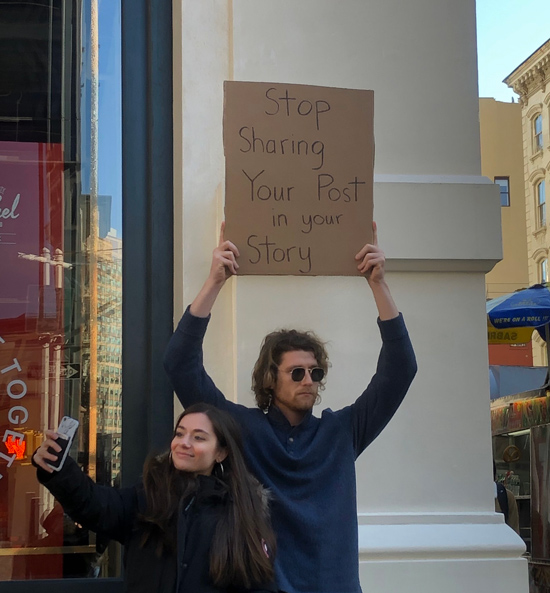 Stop
Sharing
Your Post
in your
Story
TOGET
WE'RE ON A ROLL